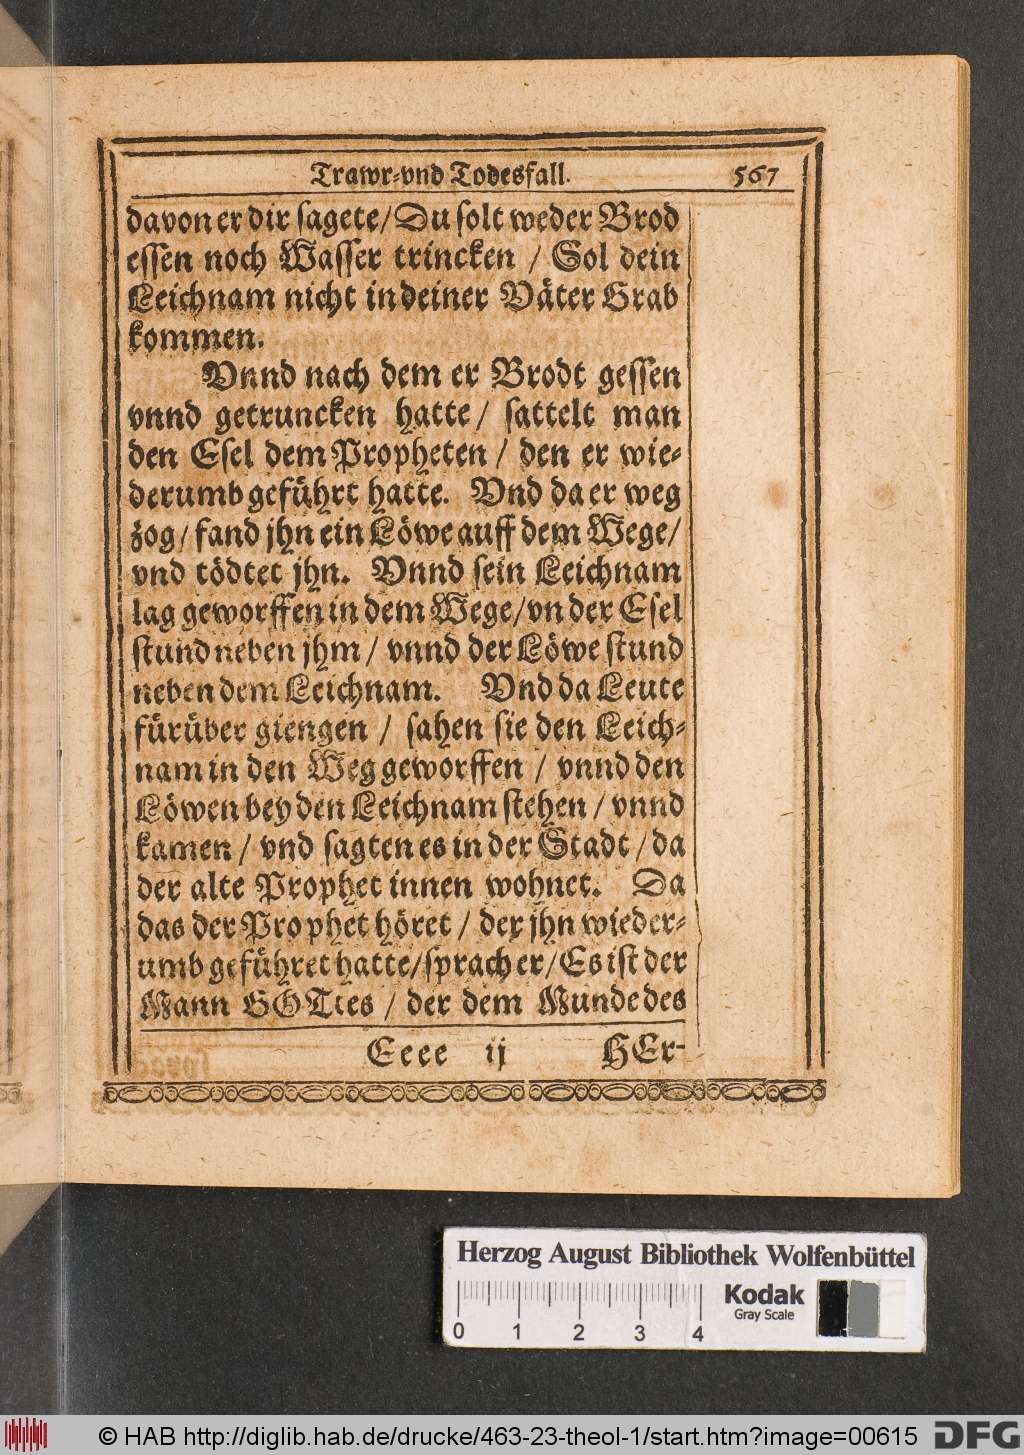 Trawr-vnd Todesfall. 567
davon er dir sagete/Du solt weder Brod
essen noch Wasser trincken / Sol dein
Leichnam nicht in deiner Väter Grab
kommen.
Vnnd nach dem er Brodt gessen
vnnd getruncken hatte/ sattelt man
den Esel dem Propheten / den er wie-
derumb geführt hatte. Vnd da er weg
zog/fand jhn ein Löwe auff dem Wege/
vnd tödtet jhn. Vnnd sein Leichnam
lag geworffen in dem Wege/vn der Esel
stund neben jhm / vnnd der Löwe stund
neben dem Leichnam. Vnd da Leute
fürüber giengen / sahen sie den Leich-
nam in den Weg geworffen / vnnd den
Löwen bey den Leichnam stehen / vnnd
kamen / vnd sagten es in der Stadt / da
der alte Prophet innen wohnet. Da
das der Prophet höret / der jhn wieder-
umb geführet hatte/sprach er/Es ist der
Mann GOTtes / der dem Munde des
Eeee ij HEr-
Herzog August Bibliothek Wolfenbüttel
Kodak
Gray Scale
0 1 2 3 4
© HAB http://diglib.hab.de/drucke/463-23-theol-1/start.htm?image=00615
DFG